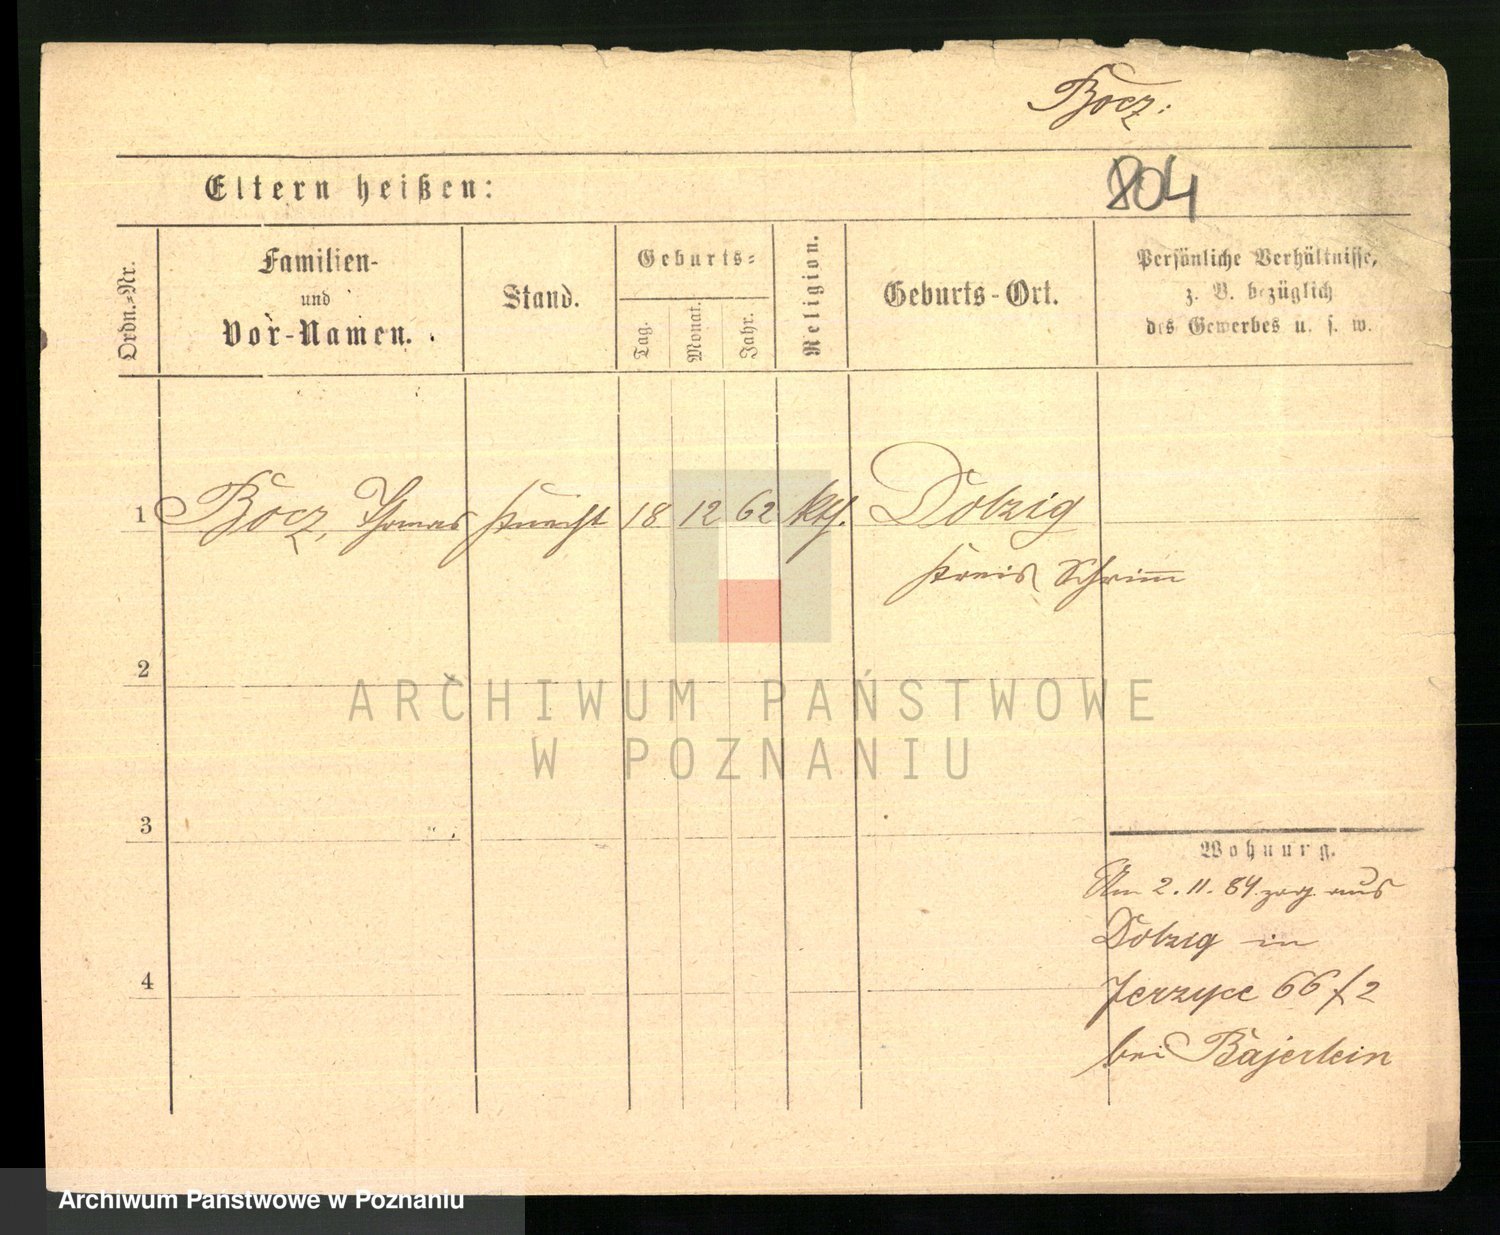 Bocz:
804
Eltern heißen:
Ordn.-Nr.
Familien-
und
Vor-Namen.
Stand.
Geburts-
Tag.
Monat.
Jahr.
Religion.
Geburts-Ort.
Persönliche Verhältnisse,
z. B. bezüglich
des Gewerbes u. s. w.
1 Bocz, Thomas Knecht 18 12 62 kth. Dolzig
Kreis Schrimm
2
ARCHIWUM PAŃSTWOWE
W POZNANIU
3
Wohnung.
Am 2. 11. 84 zog aus
Dolzig in
4
Jerzyce 66/2
bei Bajerlein
Archiwum Państwowe w Poznaniu